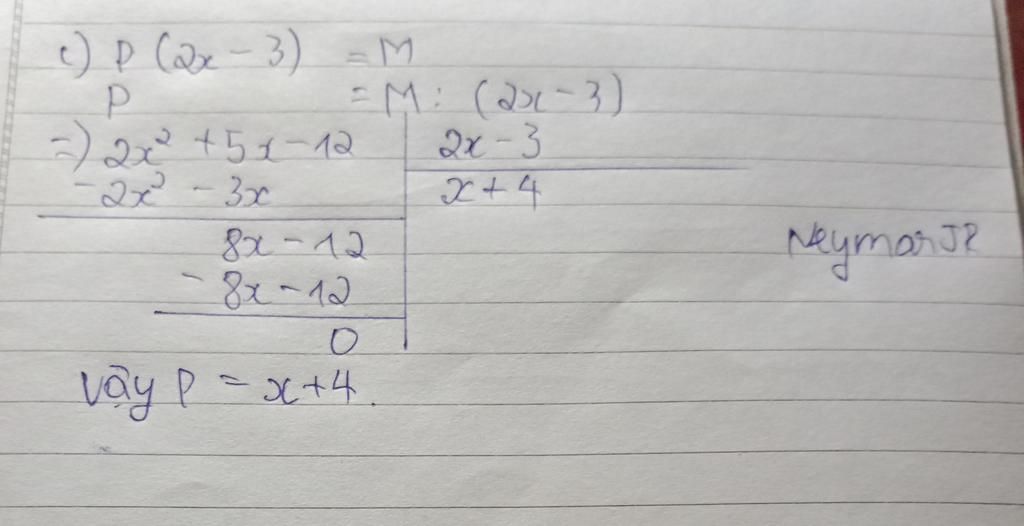 c) P (2x - 3) = M
P = M : (2x - 3)
=) 2x² + 5x - 12 | 2x - 3
- 2x² - 3x | x + 4
8x - 12
- 8x - 12
0
NeymarJR
Vậy P = x + 4.